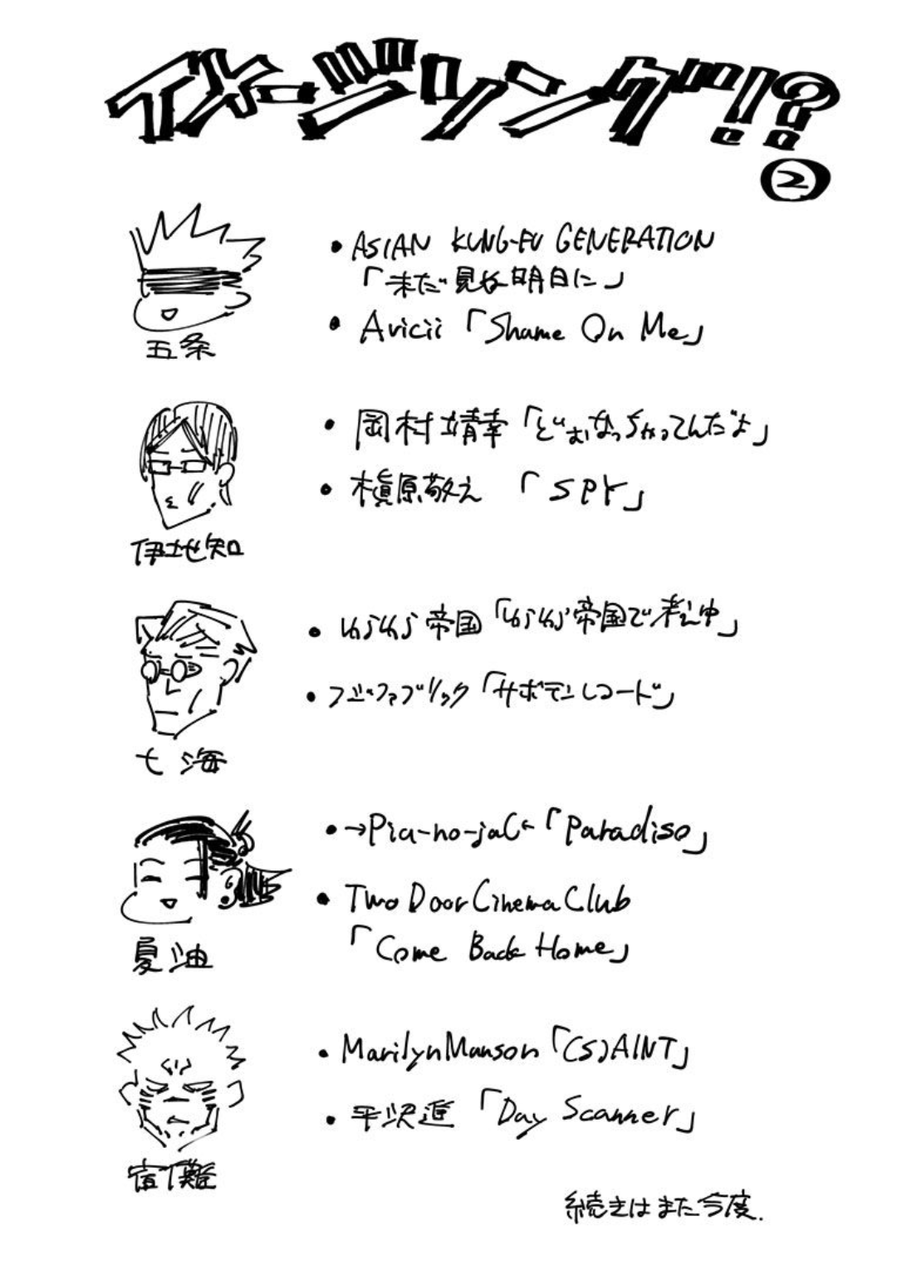 イメージソング!?
②
・ASIAN KUNG-FU GENERATION
「まだ見ぬ明日に」
・Avicii「Shame On Me」
五条
・岡村靖幸「どぉなっちゃってんだよ」
・槇原敬之「SPY」
伊地知
・ゆらゆら帝国「ゆらゆら帝国で考え中」
・フジファブリック「サボテンレコード」
七海
・→Pia-no-jaC←「Paradiso」
・Two Door Cinema Club
「Come Back Home」
夏油
・Marilyn Manson「(S)AINT」
・平沢進「Day Scanner」
宿儺
続きはまた今度.